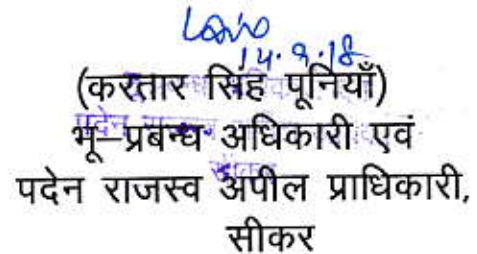 14.9.18
(करतार सिंह पूनियाँ)
भू–प्रबन्ध अधिकारी एवं
पदेन राजस्व अपील प्राधिकारी,
सीकर